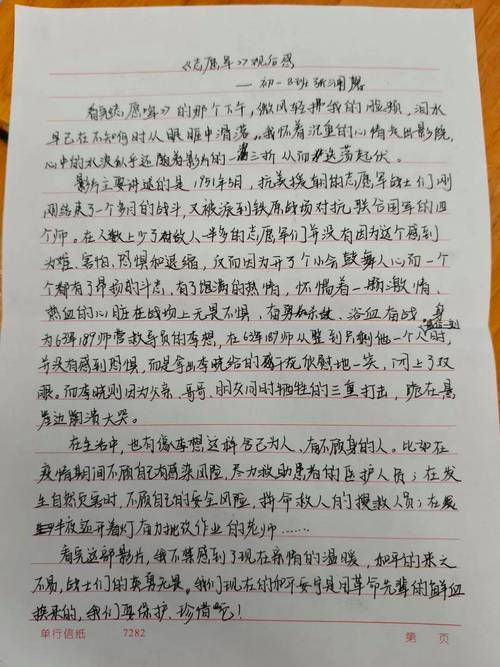 《志愿军》观后感
——初一8班 张润馨
看完《志愿军》的那个下午，微风轻拂我的脸颊，泪水
早已在不知何时从眼眶中滑落。我怀着沉重的心情走出影院，
心中的水波似乎还随着影片的一波三折从而迭荡起伏。
影片主要讲述的是1951年5月，抗美援朝的志愿军战士们刚
刚结束了一个多月的战斗，又被派到铁原战场对抗联合国军的四
个师。在人数上少了敌人一半多的志愿军们并没有因为这个感到
为难、害怕、恐惧和退缩，反而因为开了个小会鼓舞人心而一个
个都有了昂扬的斗志，有了饱满的热情，怀惴着一颗激情、
热血的心脏在战场上无畏不惧、奋勇杀敌、浴血奋战。身
为63军189师营教导员的李想，在63军189师从整到只剩他一个人时，最后一刻
并没有感到恐惧，而是拿出李晓给的 欣慰地一笑，闭上了双
眼。而李晓则因为父亲、哥哥、朋友同时牺牲的三重打击，跪在悬
崖边崩溃大哭。
在生活中，也有像李想这样舍己为人、奋不顾身的人。比如在
疫情期间不顾自己有感染风险，尽力救助患者的医护人员；在发
生自然灾害时，不顾自己的安全风险，拼命救人的搜救人员；在
半夜还开着灯奋力批改作业的老师……
看完这部影片，我不禁感到了现在亲情的温暖，和平的来之
不易，战士们的英勇无畏。我们现在的和平安宁是用革命先辈的鲜血
换来的，我们要保护、珍惜它！
单行信纸 7282 第 页